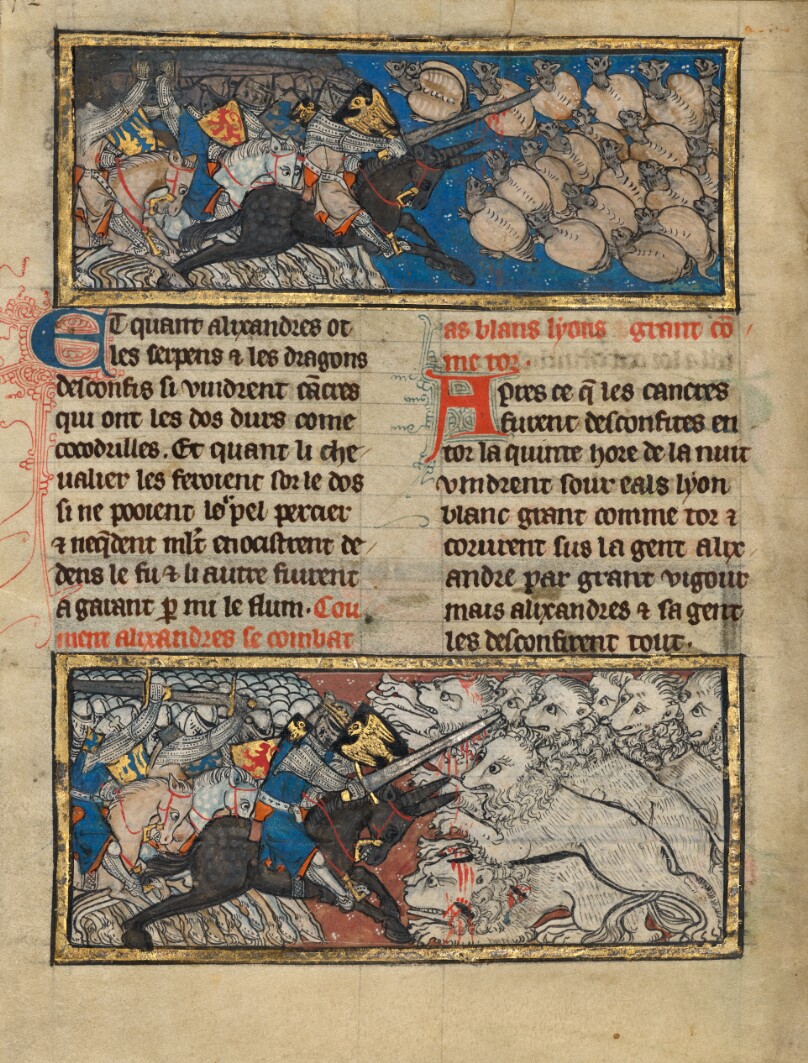 Et quant alixandres ot
les serpens ⁊ les dragons
desconfis si vindrent cācres
qui ont les dos durs come
cocodrilles. Et quant li che
ualier les feroient sor le dos
si ne pooient lor pel percier
⁊ neq̄dent ml't enocistrent de
dens le fu ⁊ li autre fuirent
a garant p̱ mi le flum. Cou
ment alixandres se combat
as blans lyons grant cō
me tor.
Apres ce q̄ les cancres
furent desconfites en
tor la quinte hore de la nuit
vindrent sour eals lyon
blanc grant comme tor ⁊
corurent sus la gent alix
andre par grant vigour
mais alixandres ⁊ sa gent
les desconfirent tout.